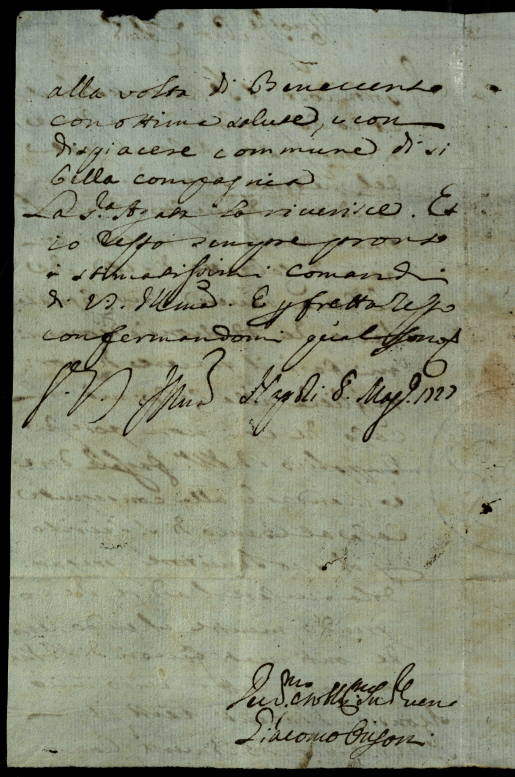 alla volta di Benevento
con ottima salute, e con
dispiacere commune di si
bella compagnia
La S.ra Agata la riverisce. Et
io resto sempre pronto
a stimatissimi comandi
di V.S. Ill.ma. E p fretta resto
confermandomi qual sono
Di V.S. Ill.ma Napoli 8. Mag.o 1727
Giacomo